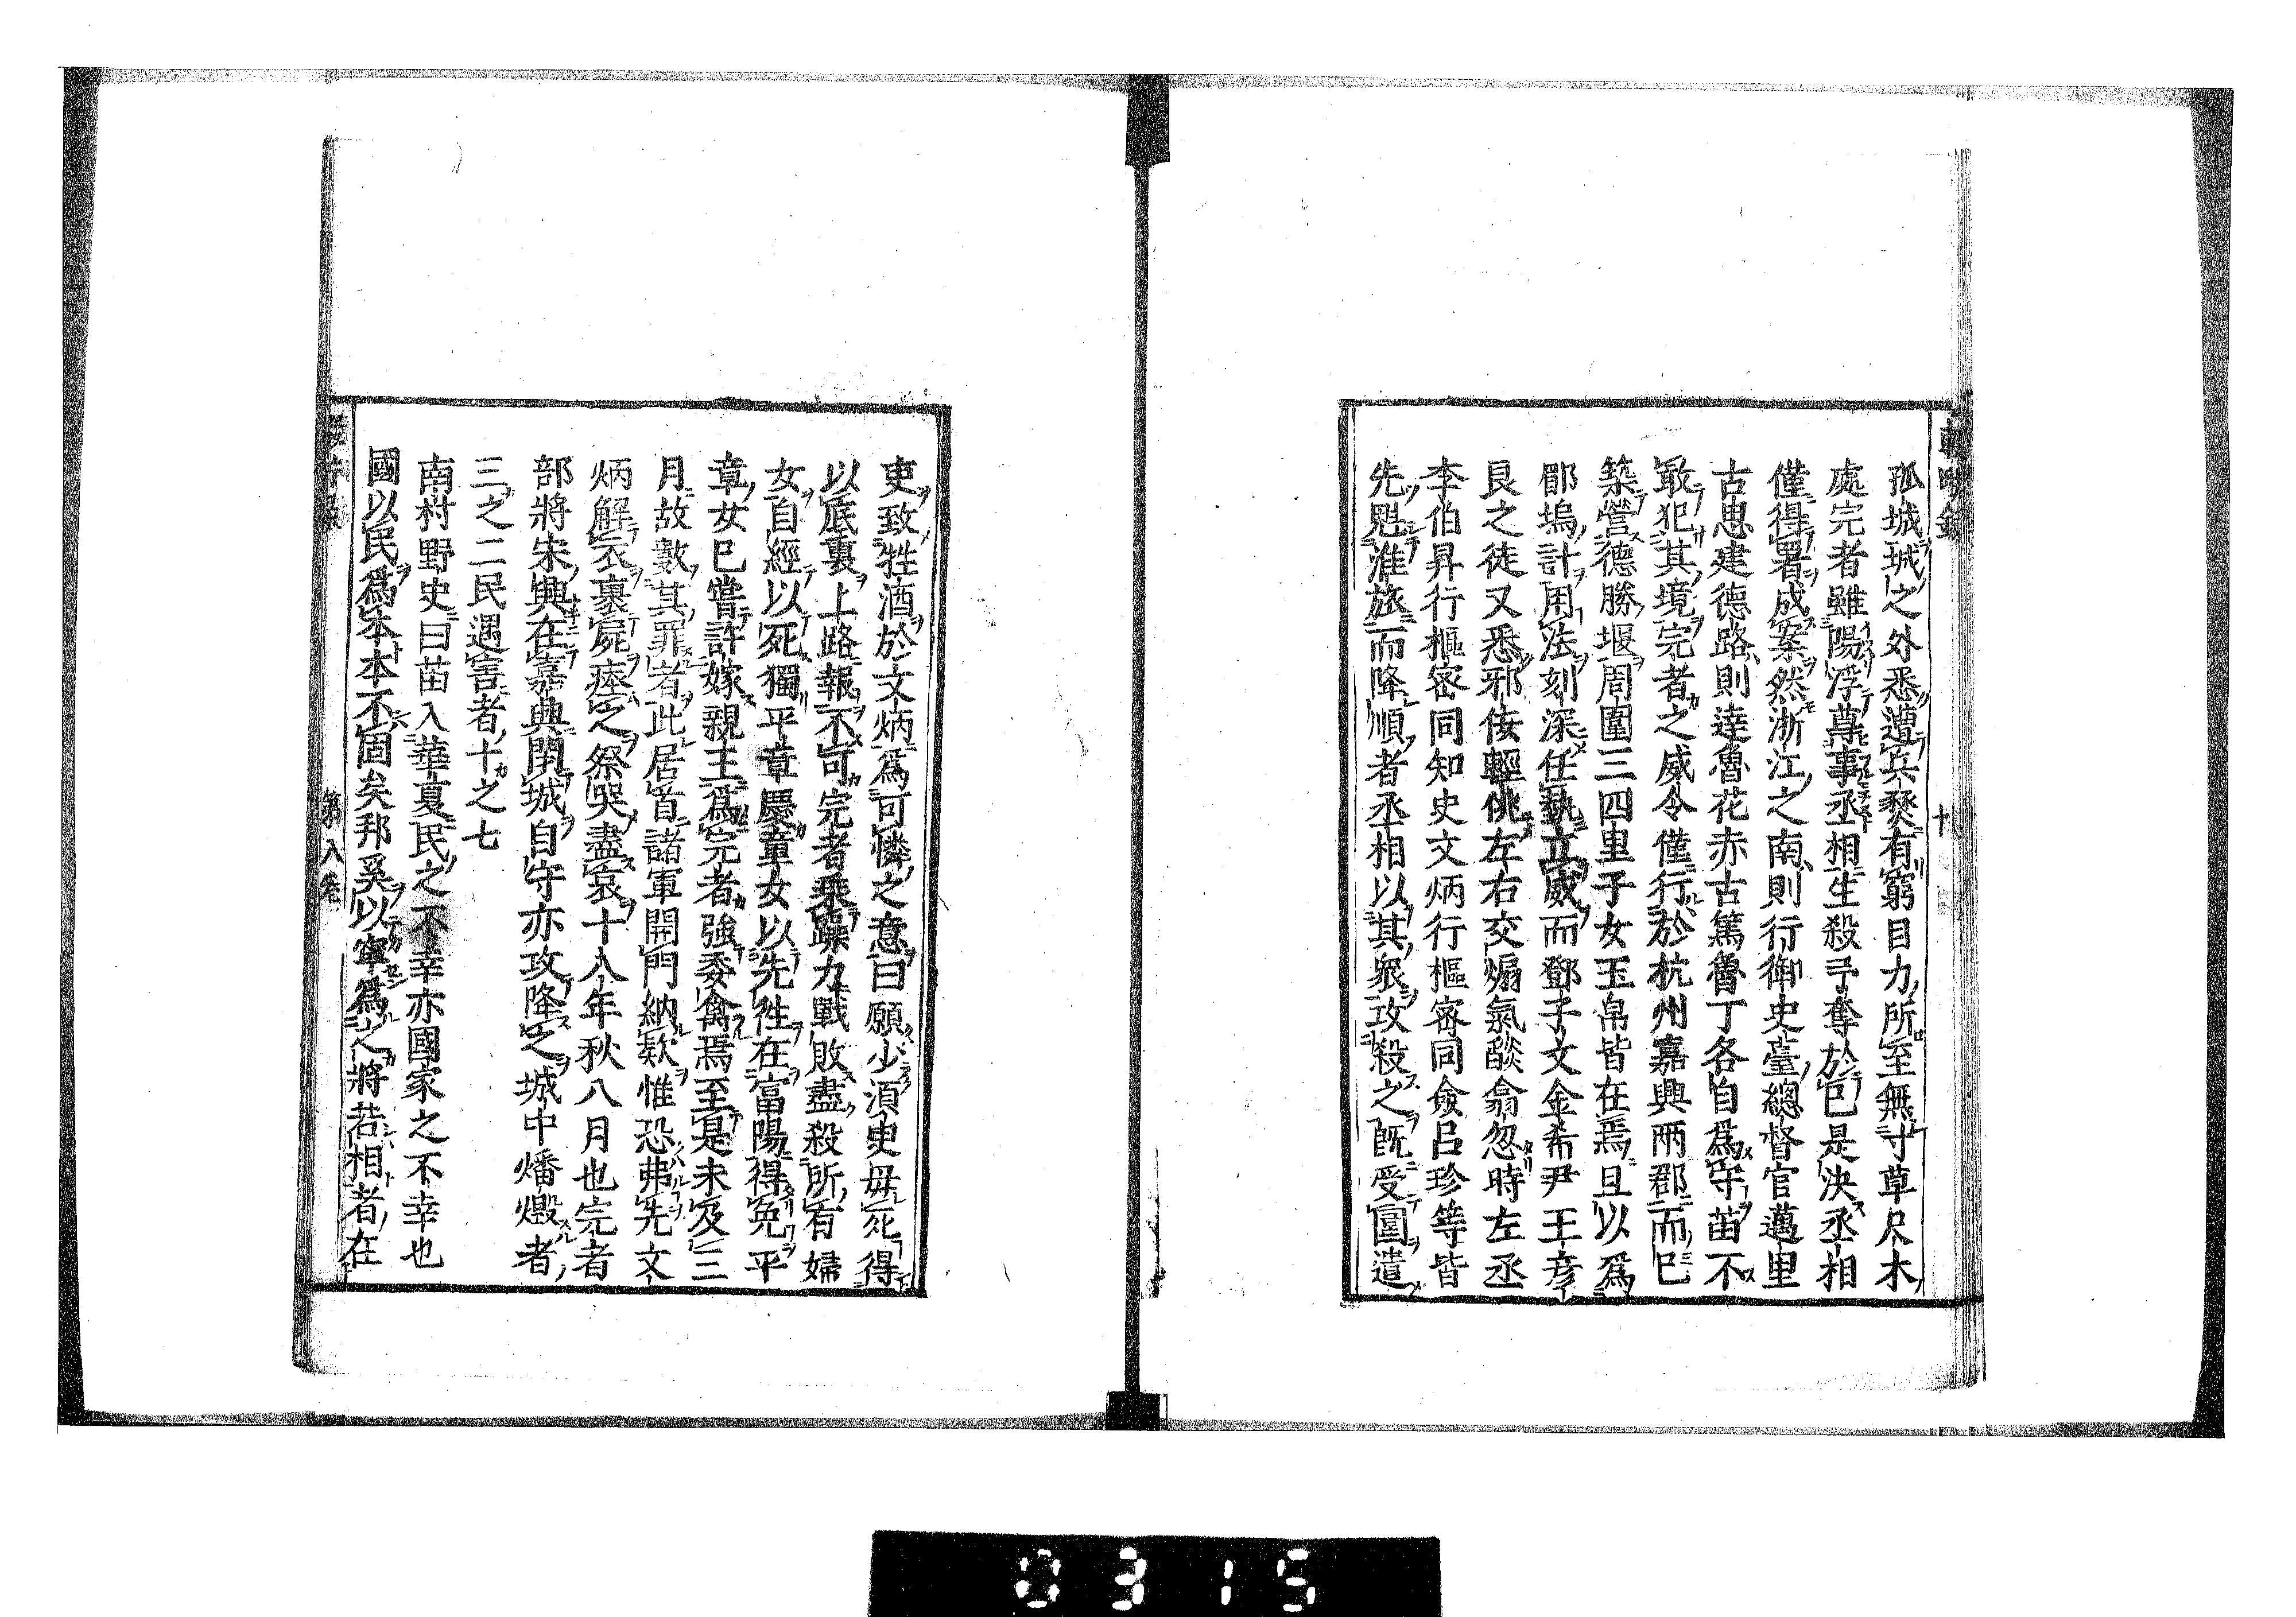 孤城城之外悉遭兵燹有窮目力所至無寸草尺木
處完者雖陽浮尊事丞相生殺予奪於已是決丞相
僅得署成案然浙江之南則行御史臺總督官邁里
古思建德路則達魯花赤古篤魯丁各自爲守苗不
敢犯其境完者之威令僅行於杭州嘉興兩郡而已
築營德勝堰周圍三四里子女玉帛皆在焉且以爲
郿塢計用法刻深任執立威而鄧子文金希尹王彦
良之徒又悉邪佞輕佻左右交煽氣燄翕忽時左丞
李伯昇行樞密同知史文炳行樞密同僉呂珍等皆
先遁淮旅而降順者丞相以其衆攻殺之旣受圍遣
吏致牲酒於文炳爲可憐之意曰願少須臾毋死得
以底裏上路報不可完者乘躁力戰敗盡殺所有婦
女自經以死獨平章慶童女以先徃在富陽得免平
章女已嘗許嫁親王爲完者強委禽焉至是未及三
月故數其罪者此居首諸軍開門納欵惟恐弗先文
炳解衣裹屍瘞之祭哭盡哀十八年秋八月也完者
部將宋興在嘉興閉城自守亦攻降之城中燔燬者
三之二民遇害者十之七
南村野史曰苗入華夏民之不幸亦國家之不幸也
國以民爲本本不固矣邦奚以寧爲之將若相者在
第八卷